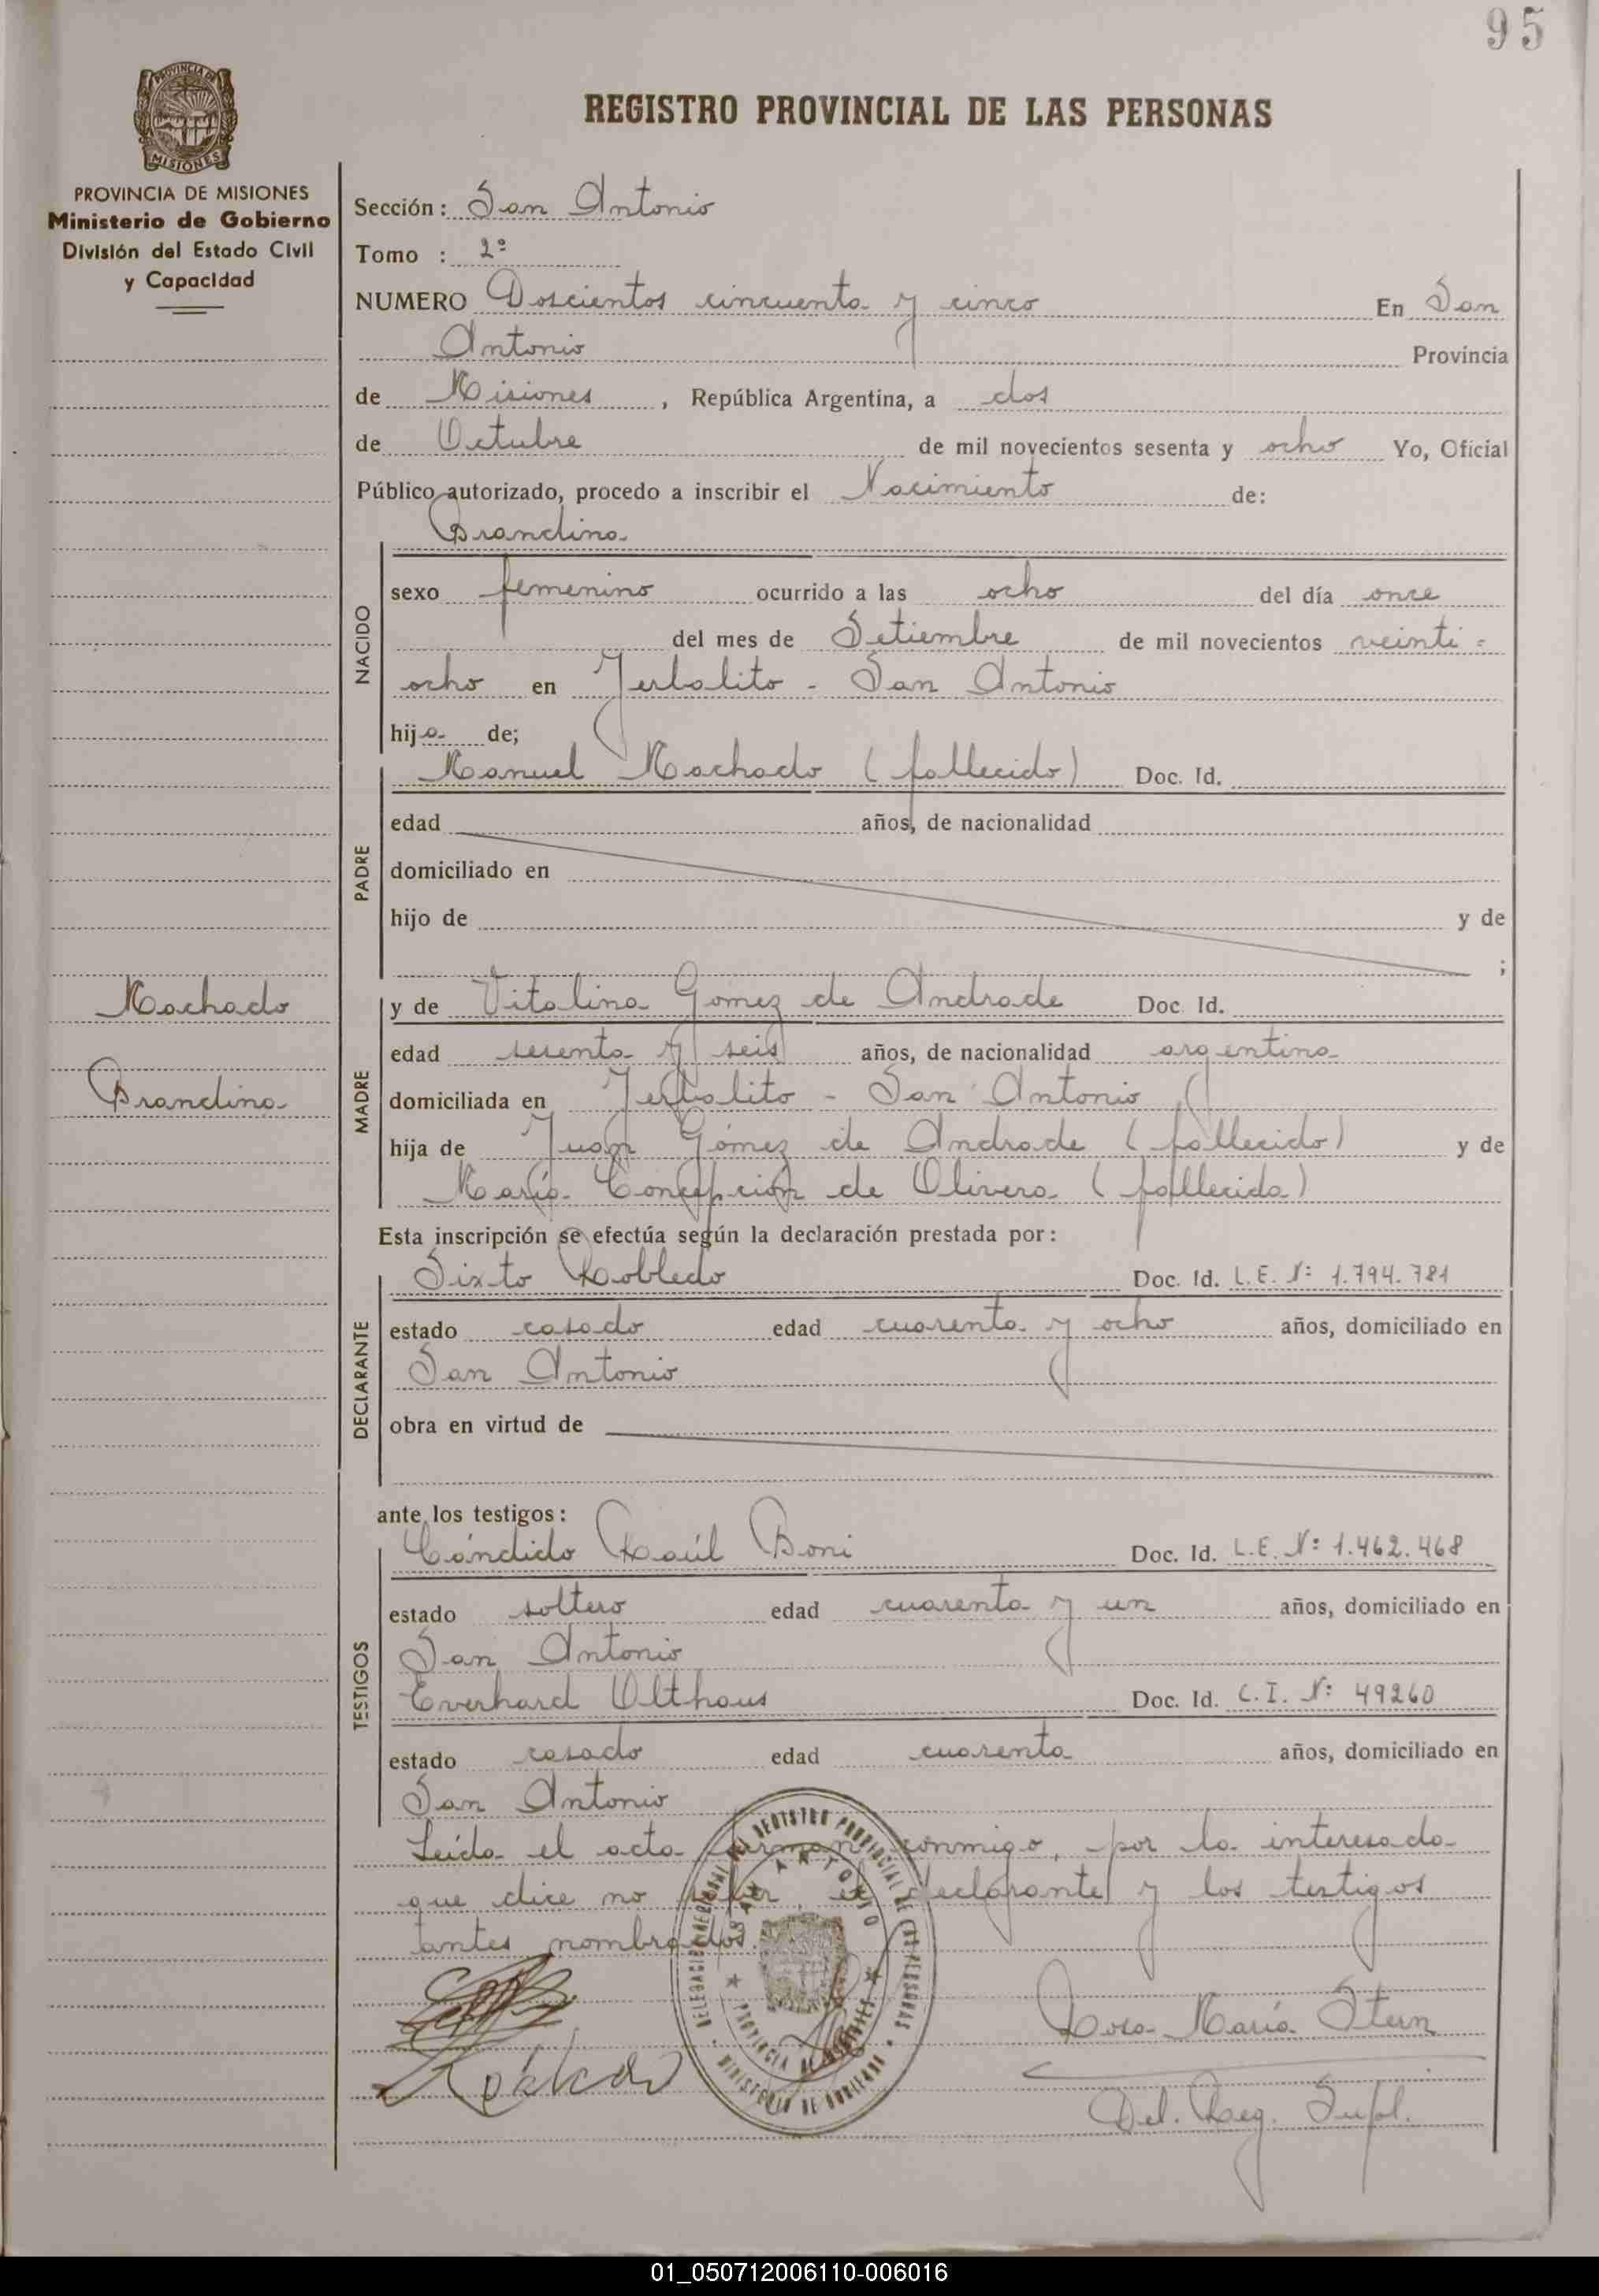 95
PROVINCIA DE
MISIONES
REGISTRO PROVINCIAL DE LAS PERSONAS
PROVINCIA DE MISIONES
Ministerio de Gobierno
División del Estado Civil
y Capacidad
Sección: San Antonio
Tomo : 2º
NUMERO Doscientos cincuenta y cinco En San
Antonio Provincia
de Misiones, República Argentina, a dos
de Octubre de mil novecientos sesenta y ocho Yo, Oficial
Público autorizado, procedo a inscribir el Nacimiento de:
Brandina
NACIDO
sexo femenino ocurrido a las ocho del día once
del mes de Setiembre de mil novecientos veinti=
ocho en Yerbalito - San Antonio
hija de;
Manuel Machado (fallecido) Doc. Id.
PADRE
edad años, de nacionalidad
domiciliado en
hijo de y de
;
Machado
Brandina
y de Vitalina Gomez de Andrade Doc. Id.
MADRE
edad sesenta y seis años, de nacionalidad argentina
domiciliada en Yerbalito - San Antonio
hija de Juan Gómez de Andrade (fallecido) y de
María Concepción de Olivera (fallecida)
Esta inscripción se efectúa según la declaración prestada por:
Sixto Robledo Doc. Id. L.E. Nº 1.794.781
DECLARANTE
estado casado edad cuarenta y ocho años, domiciliado en
San Antonio
obra en virtud de
ante los testigos:
Cándido Raúl Boni Doc. Id. L.E. Nº 1.462.468
TESTIGOS
estado soltero edad cuarenta y un años, domiciliado en
San Antonio
Everhard Olthaus Doc. Id. C.I. Nº 49260
estado casado edad cuarenta años, domiciliado en
San Antonio
Leída el acta firman conmigo, por la interesada
que dice no saber el declarante y los testigos
antes nombrados.
DELEGACION REGIONAL DEL REGISTRO PROVINCIAL DE LAS PERSONAS
SAN ANTONIO
PROVINCIA DE MISIONES
MINISTERIO DE GOBIERNO
Rosa María Stern
Del. Reg. Supl.
01_050712006110-006016